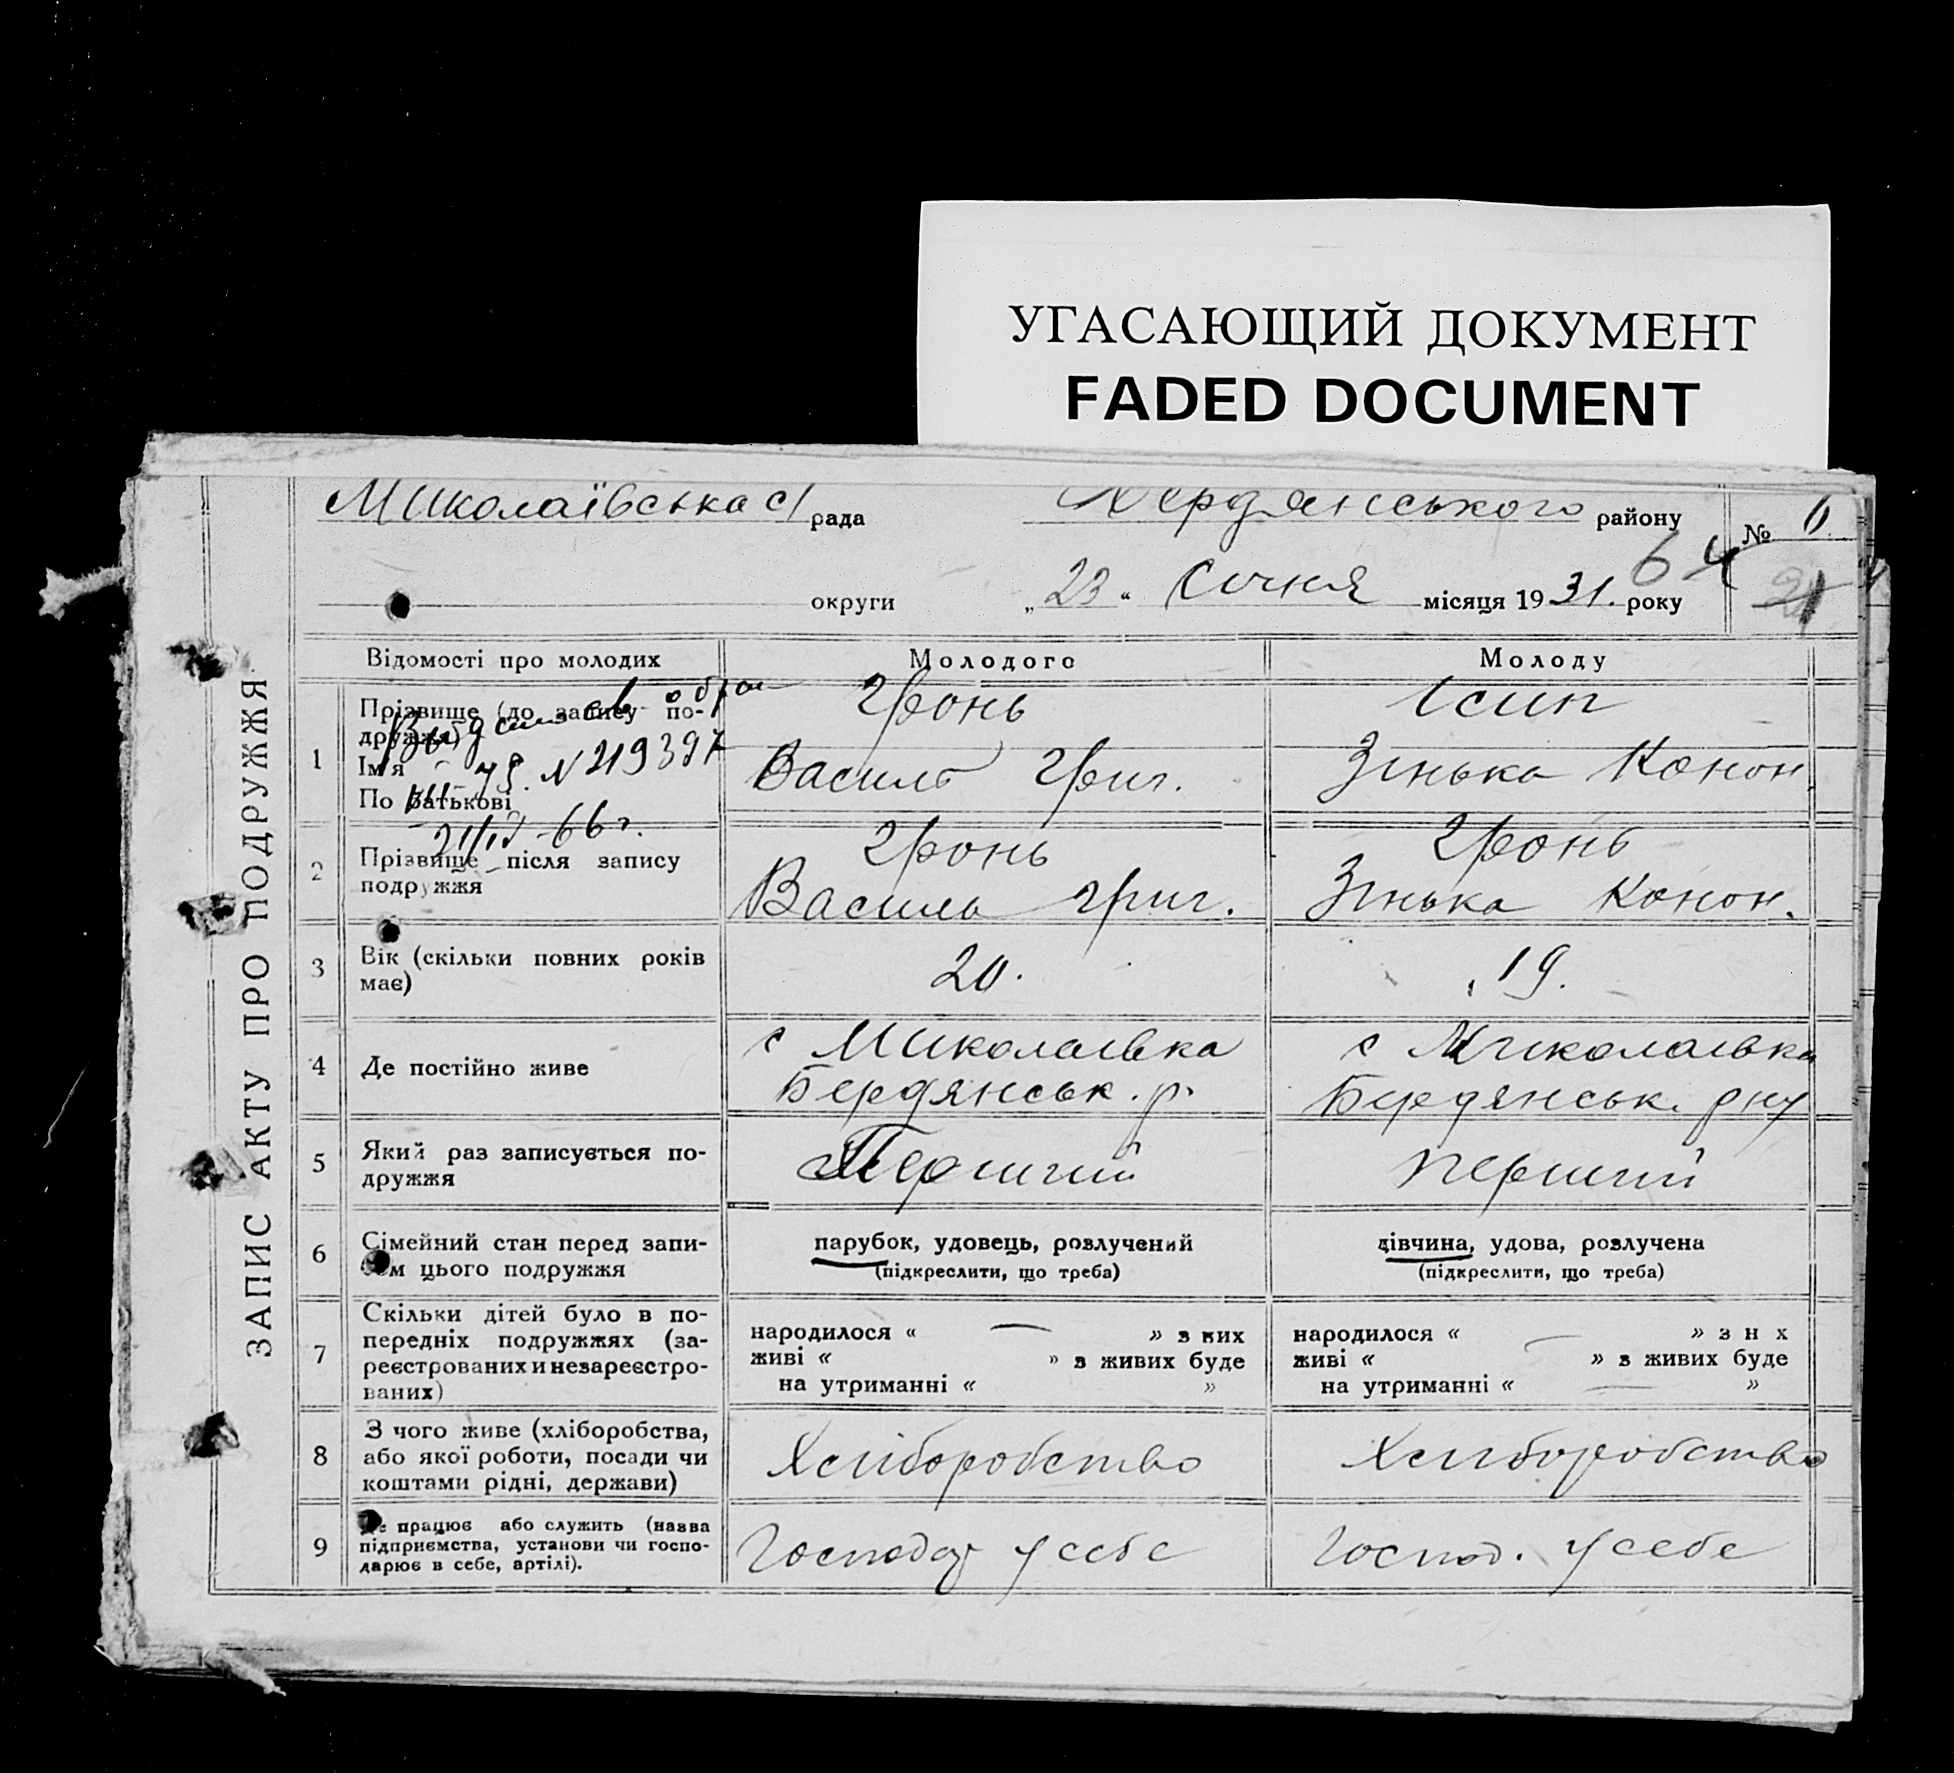 УГАСАЮЩИЙ ДОКУМЕНТ
FADED DOCUMENT
Миколаївська с/ рада Бердянського району № 6
округи „23“ Січня місяця 1931. року
64
21
ЗАПИС АКТУ ПРО ПОДРУЖЖЯ
Відомості про молодих Молодого Молоду
1 Прізвище (до запису подружжя) Гронь Ісип
Ім'я Василь Григ. Зінька Конон.
По батькові
№ 219397
21/IV-66 г.
2 Прізвище після запису Гронь Гронь
подружжя Василь Григ. Зінька Конон.
3 Вік (скільки повних років 20. 19.
має)
4 Де постійно живе с Миколаівка с Миколаівка
Бердянськ. р. Бердянськ. рну
5 Який раз записується по- Перший перший
дружжя
6 Сімейний стан перед запи- парубок, удовець, розлучений дівчина, удова, розлучена
сом цього подружжя (підкреслити, що треба) (підкреслити, що треба)
7 Скільки дітей було в по-
передніх подружжях (за- народилося « » з них народилося « » з н х
реєстрованих и незареєстро- живі « » з живих буде живі « » з живих буде
ваних) на утриманні « » на утриманні « »
8 З чого живе (хліборобства,
або якої роботи, посади чи Хліборобство Хліборобство
коштами рідні, держави)
9 Де працює або служить (назва
підприємства, установи чи госпо- Господар у себе Господ. у себе
дарює в себе, артілі).